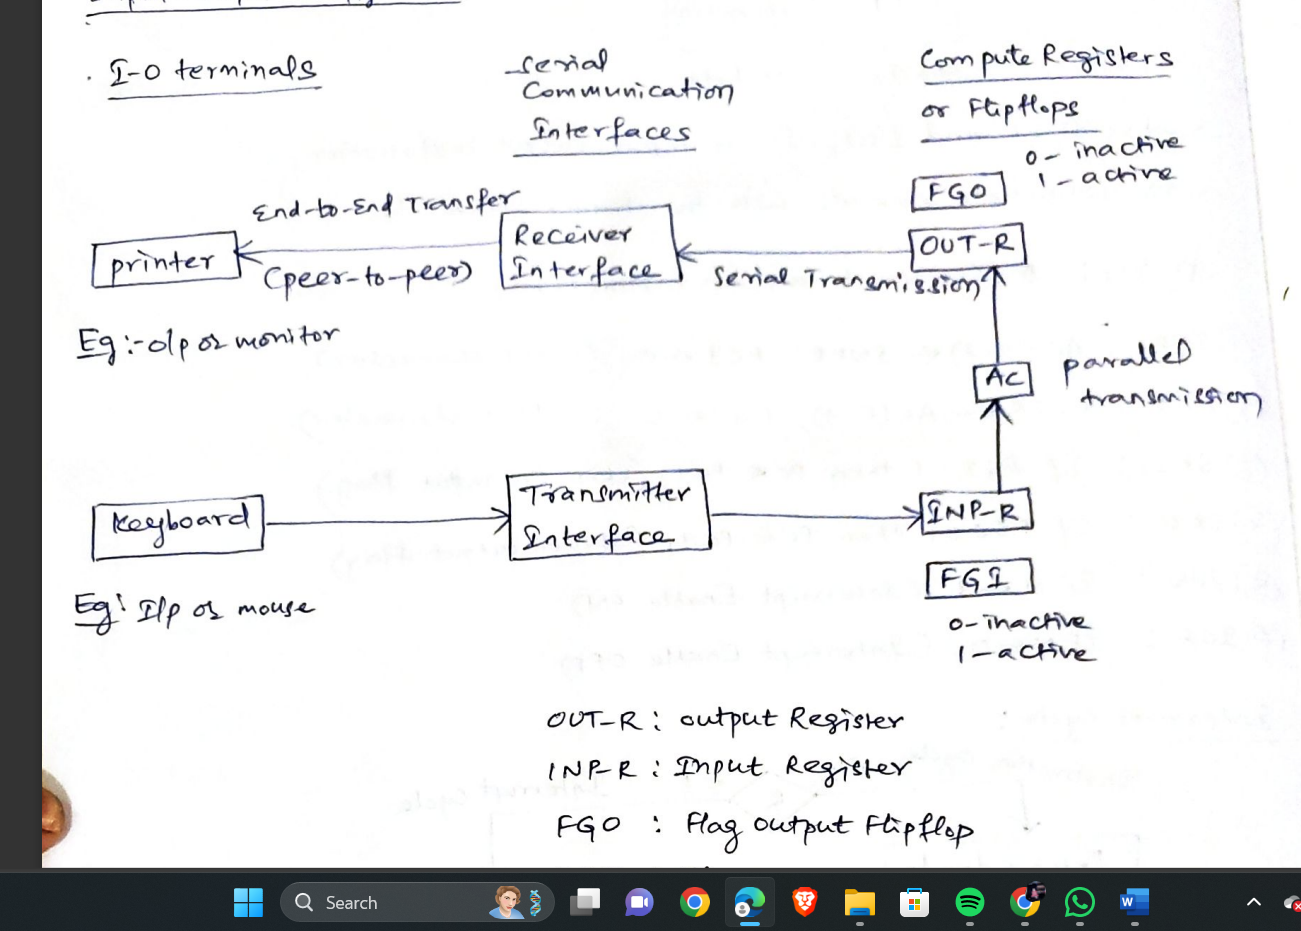 . I-O terminals
Serial
Communication
Interfaces
Compute Registers
or Flipflops
0 - inactive
1 - active
FGO
End-to-End Transfer
printer
(peer-to-peer)
Receiver
Interface
OUT-R
Serial Transmission
Eg :- o/p or monitor
AC
parallel
transmission
Keyboard
Transmitter
Interface
INP-R
Eg: I/p or mouse
FGI
0-inactive
1-active
OUT-R : output Register
INP-R : Input Register
FGO : Flag output Flipflop
Search
W